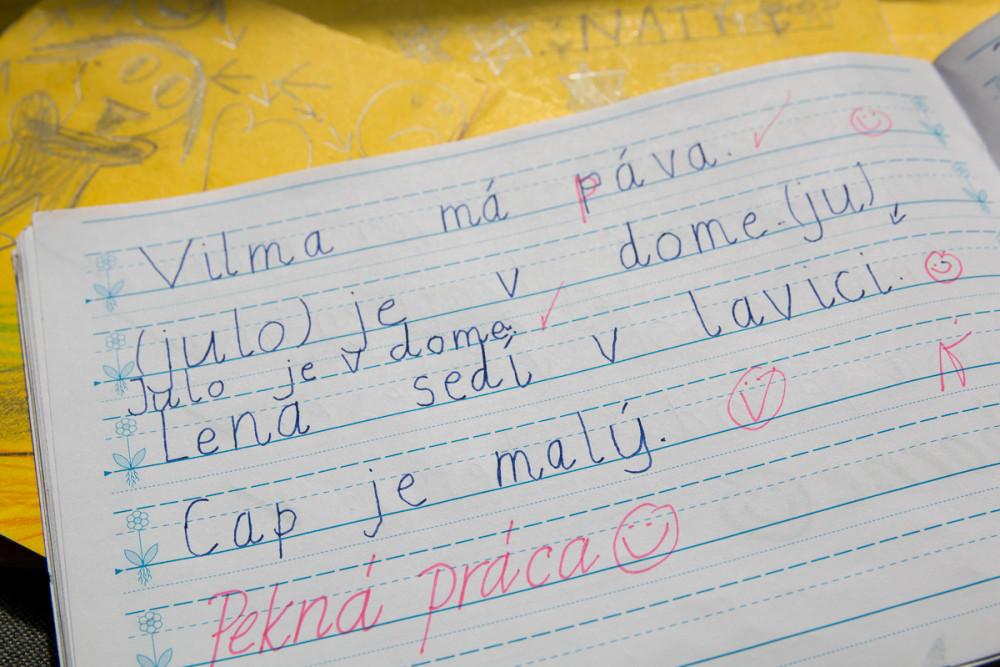 NATY
Vilma má páva.
(julo) je v dome. (ju)
Julo je v dome.
Lena sedí v lavici.
Cap je malý.
Pekná práca